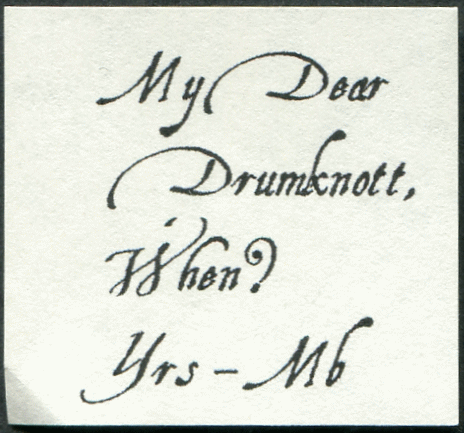 My Dear
Drumknott,
When?
Yrs - Mb